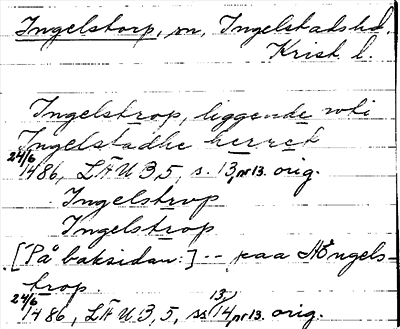 Ingelstorp, sn, Ingelstads hd,
Krist. l.
Ingelstrop, liggende vdi
Ingelstadhe herret
24/6 1486, LÄU 3,5, s. 13, nr 13. orig.
Ingelstrvp
Ingelstrop
[På baksidan:] -- paa Ængels=
trop.
24/6 1486, LÄU 3,5, ss 13, 14, nr 13. orig.